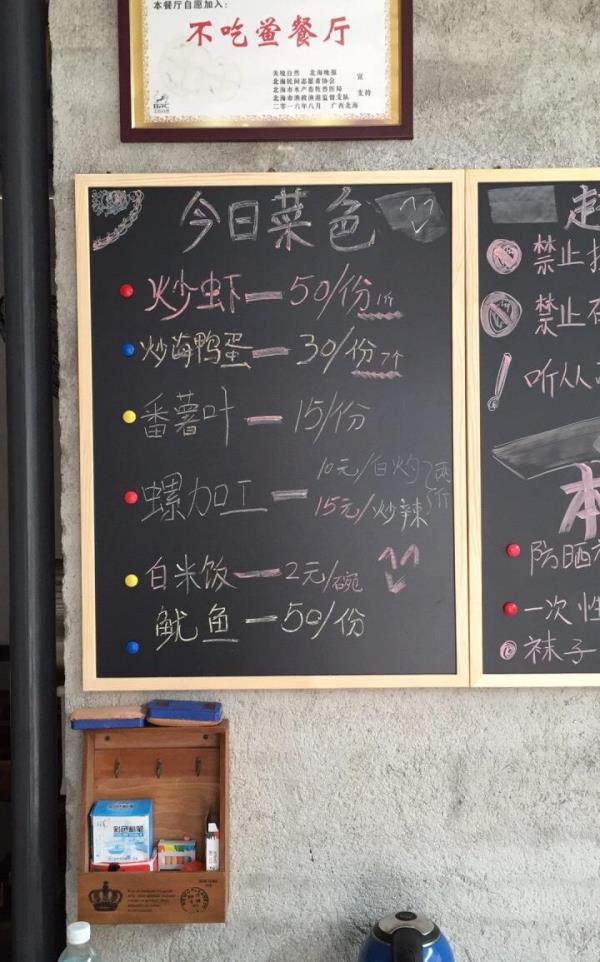 本餐厅自愿加入：
不吃鲎餐厅
美境自然 北海晚报
北海民间志愿者协会 宣
北海市水产畜牧兽医局
北海市渔政渔港监督支队 支持
二零一六年八月 广西北海
今日菜色
炒虾一50/份1斤
炒海鸭蛋一30/份7个
番薯叶一15/份
螺加工一10元/白灼
15元/炒辣
白米饭一2元/碗
鱿鱼一50/份
禁止
禁止
听从
本
防晒
一次性
袜子
彩色粉笔